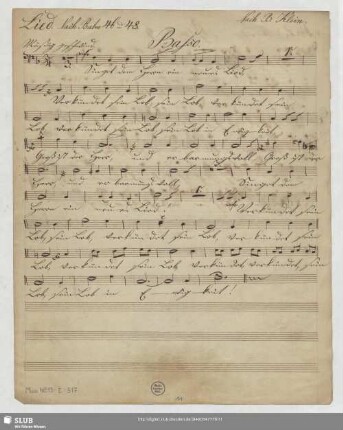 Lied. Nach Psalm 46 u. 48. nach B. Klein.
Mäßig geschwind Basso
Singet dem Herrn ein neues Lied
Verkündet sein Lob, sein Lob, verkündet sein
Lob, verkündet sein Lob sein Lob in Ewigkeit
Groß ist der Herr, und er barmungsvoll Groß ist der
Herr und er barmungsvoll, Singet dem
Herrn ein neues Lied! Verkündet sein
Lob, sein Lob, verkündet sein Lob, verkündet sein
Lob, verkündet sein Lob verkündet, verkündet, sein
Lob, sein Lob in Ewigkeit!
SLUB
Wir führen Wissen.